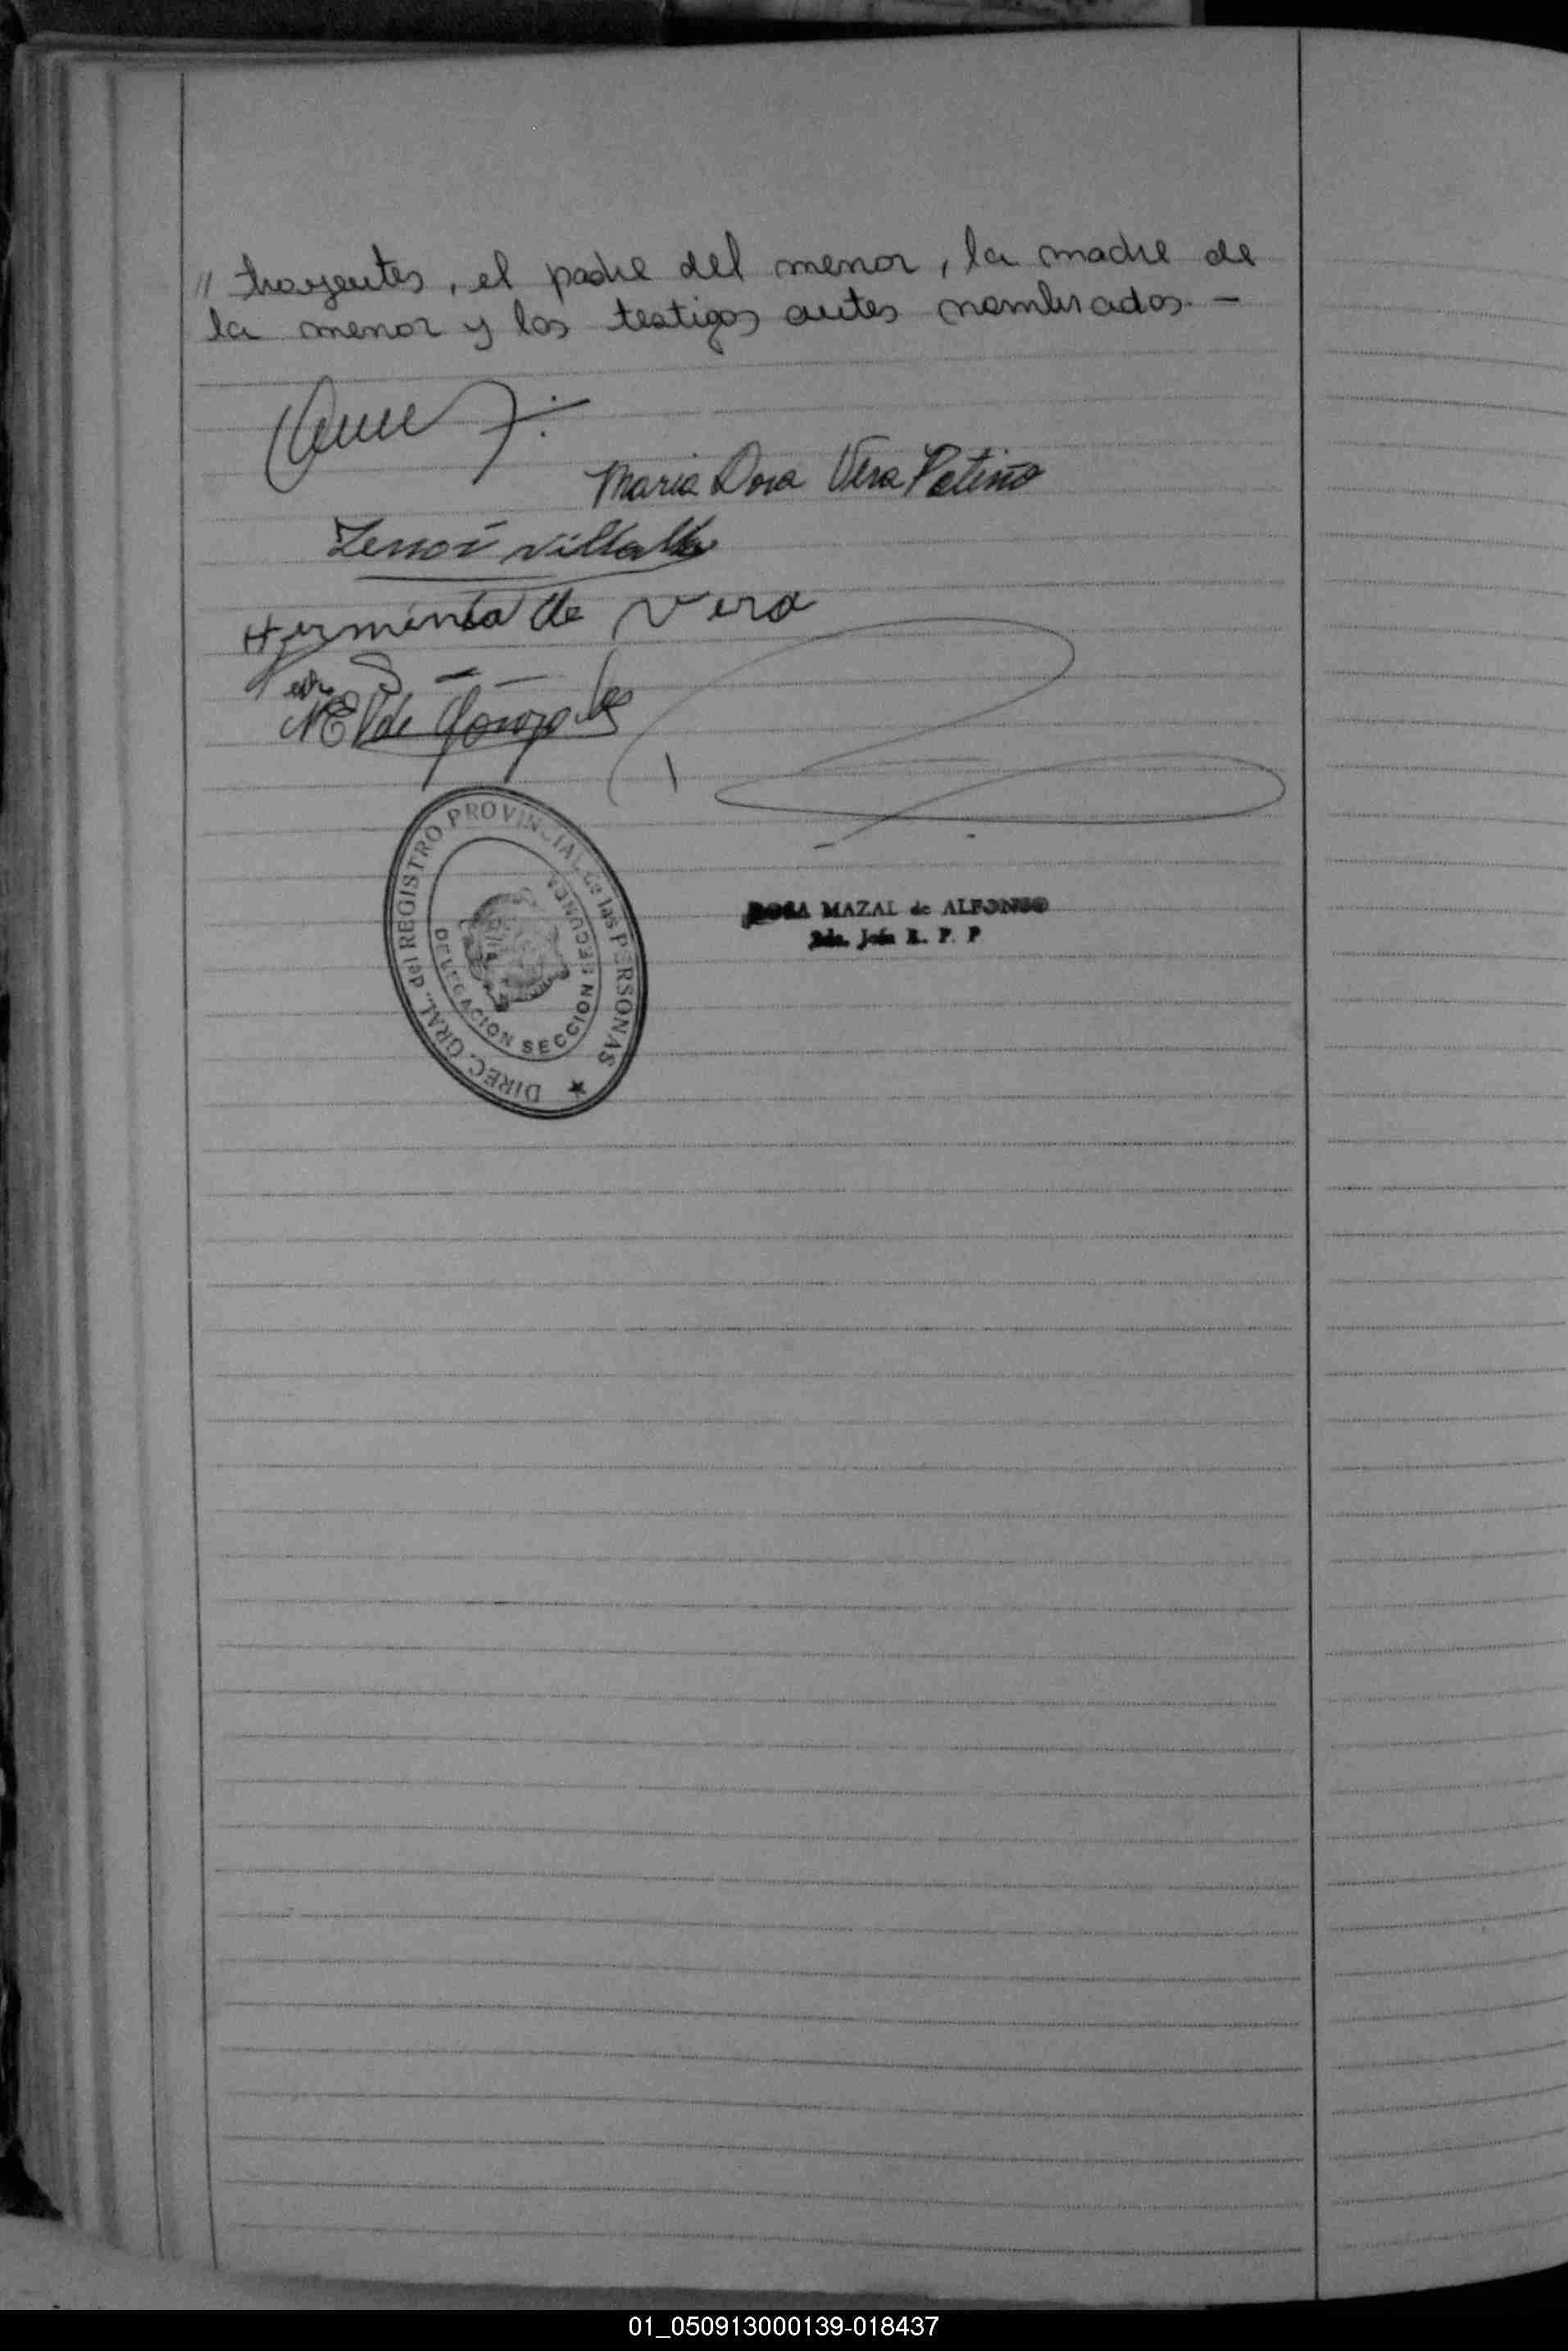 // trayentes, el padre del menor, la madre de
la menor y los testigos antes nombrados. —
Maria Dora Vera Patiño
Zenón Villalba
Herminia de Vera
NE V de Gonzalez
DIREC. GRAL. del REGISTRO PROVINCIAL de las PERSONAS
DELEGACION SECCION SEGUNDA
ROSA MAZAL de ALFONSO
Jefa R. P. P
01_050913000139-018437